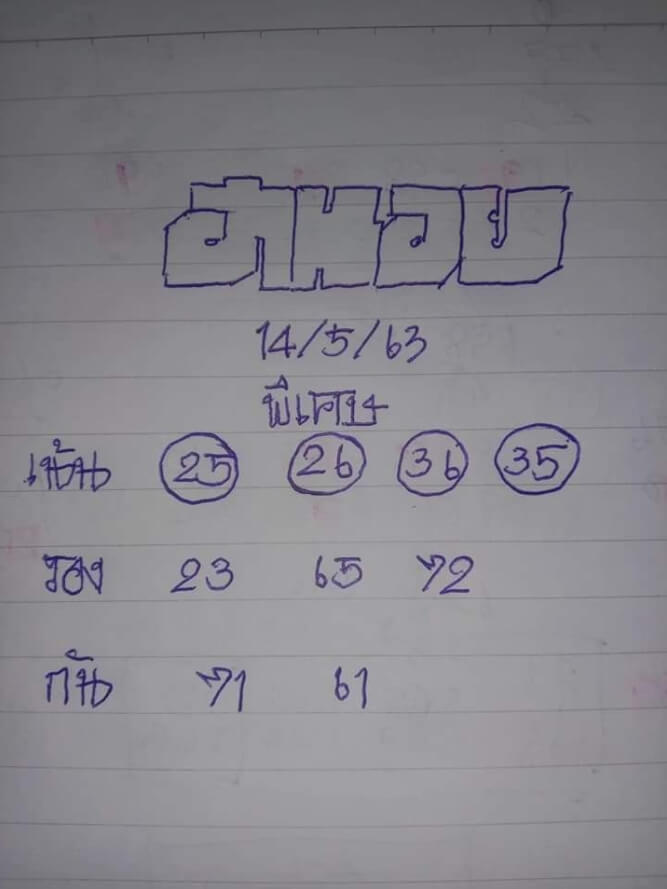 ฮานอย
14/5/63
พิเศษ
เน้น 25 26 36 35
รอง 23 65 72
กัน 71 61